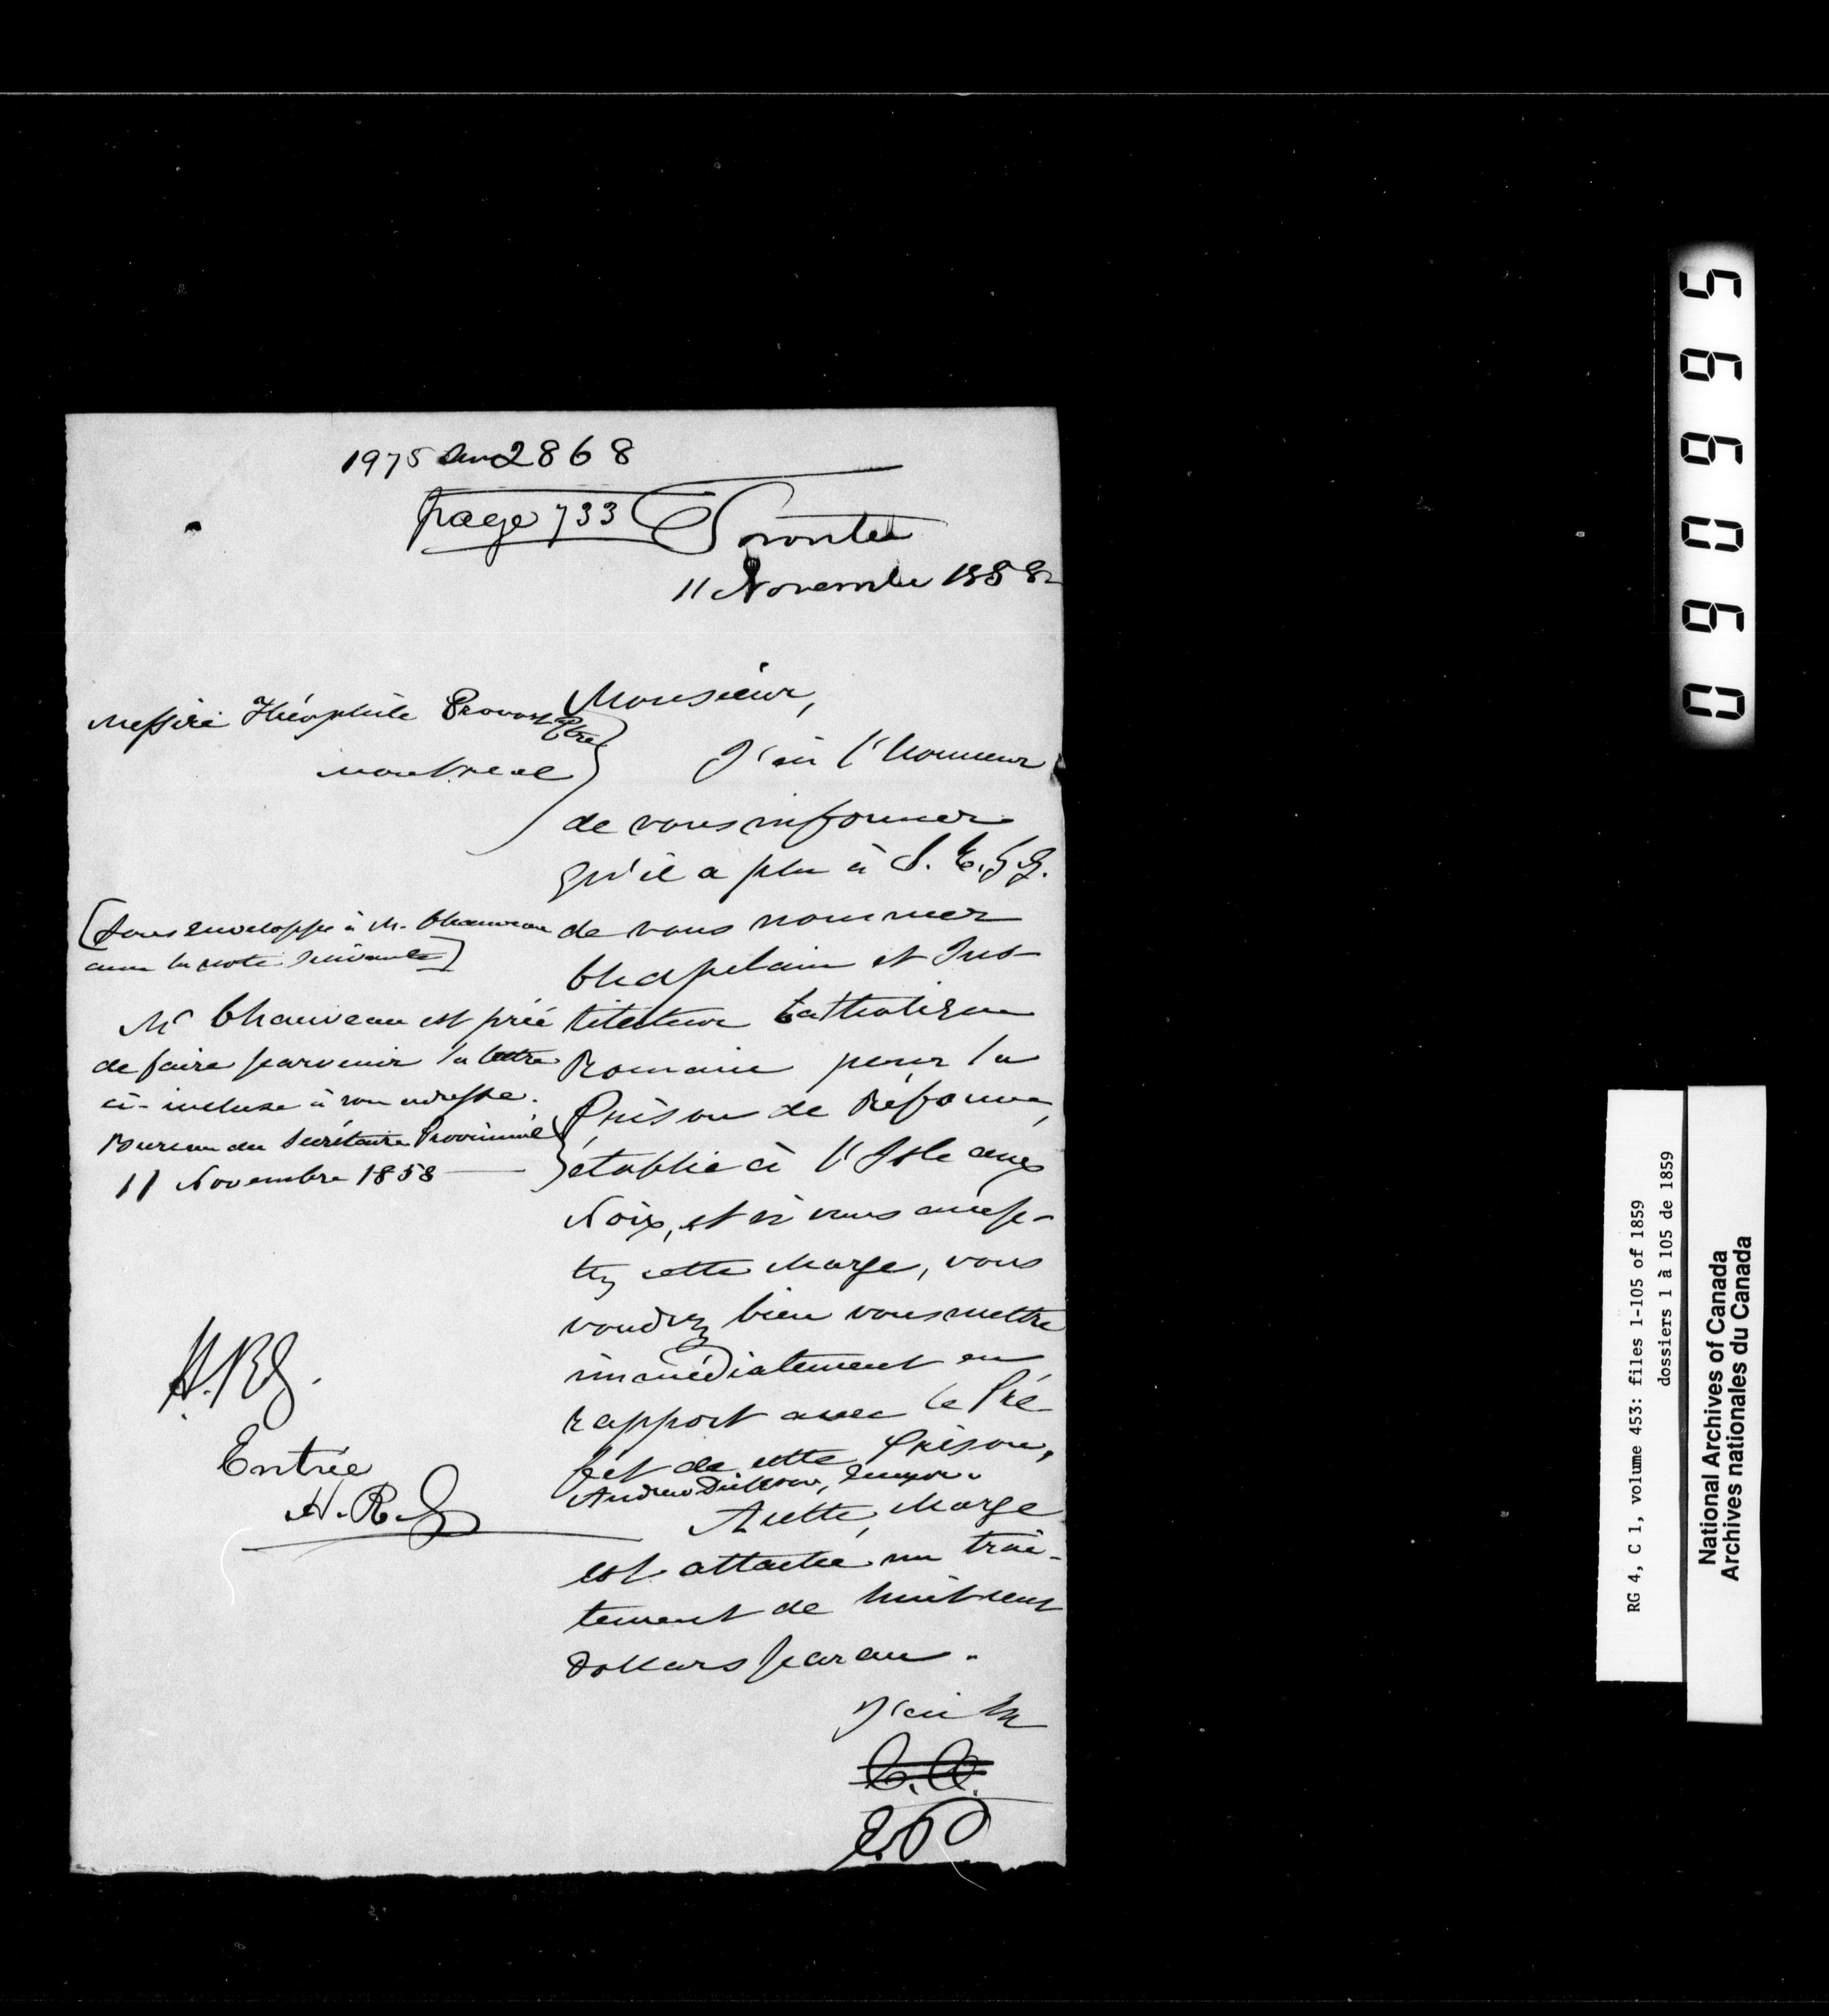 1975 sur 2868
page 733
Toronto
11 Novembre 1858
Messire Théophile Provost Ptre
Montreal
Monsieur,
J'ai l'honneur
de vous informer
qu'il a plu à S. E. G G.
de vous nommer
Chapelain et Ins-
tituteur Catholique
Romain pour la
Prison de Réforme,
établie à l'Isle aux
Noix, et si vous accep-
tez cette charge, vous
voudrez bien vous mettre
immédiatement en
rapport avec le Pré
fet de cette Prison,
Andrew Dickson, Ecuyer.
A cette charge
est attachée un trai-
tement de huit cent
Dollars par an.
J'ai
C. A.
E. P.
[Sous enveloppe à M. Chauveau
avec la note suivante]
Mr Chauveau est prié
de faire parvenir la lettre
ci-incluse à son adresse.
Bureau du Secrétaire Provincial
11 Novembre 1858
Entrée
5 6 6 0 6 0
RG 4, C 1, volume 453: files 1-105 of 1859
dossiers 1 à 105 de 1859
National Archives of Canada
Archives nationales du Canada